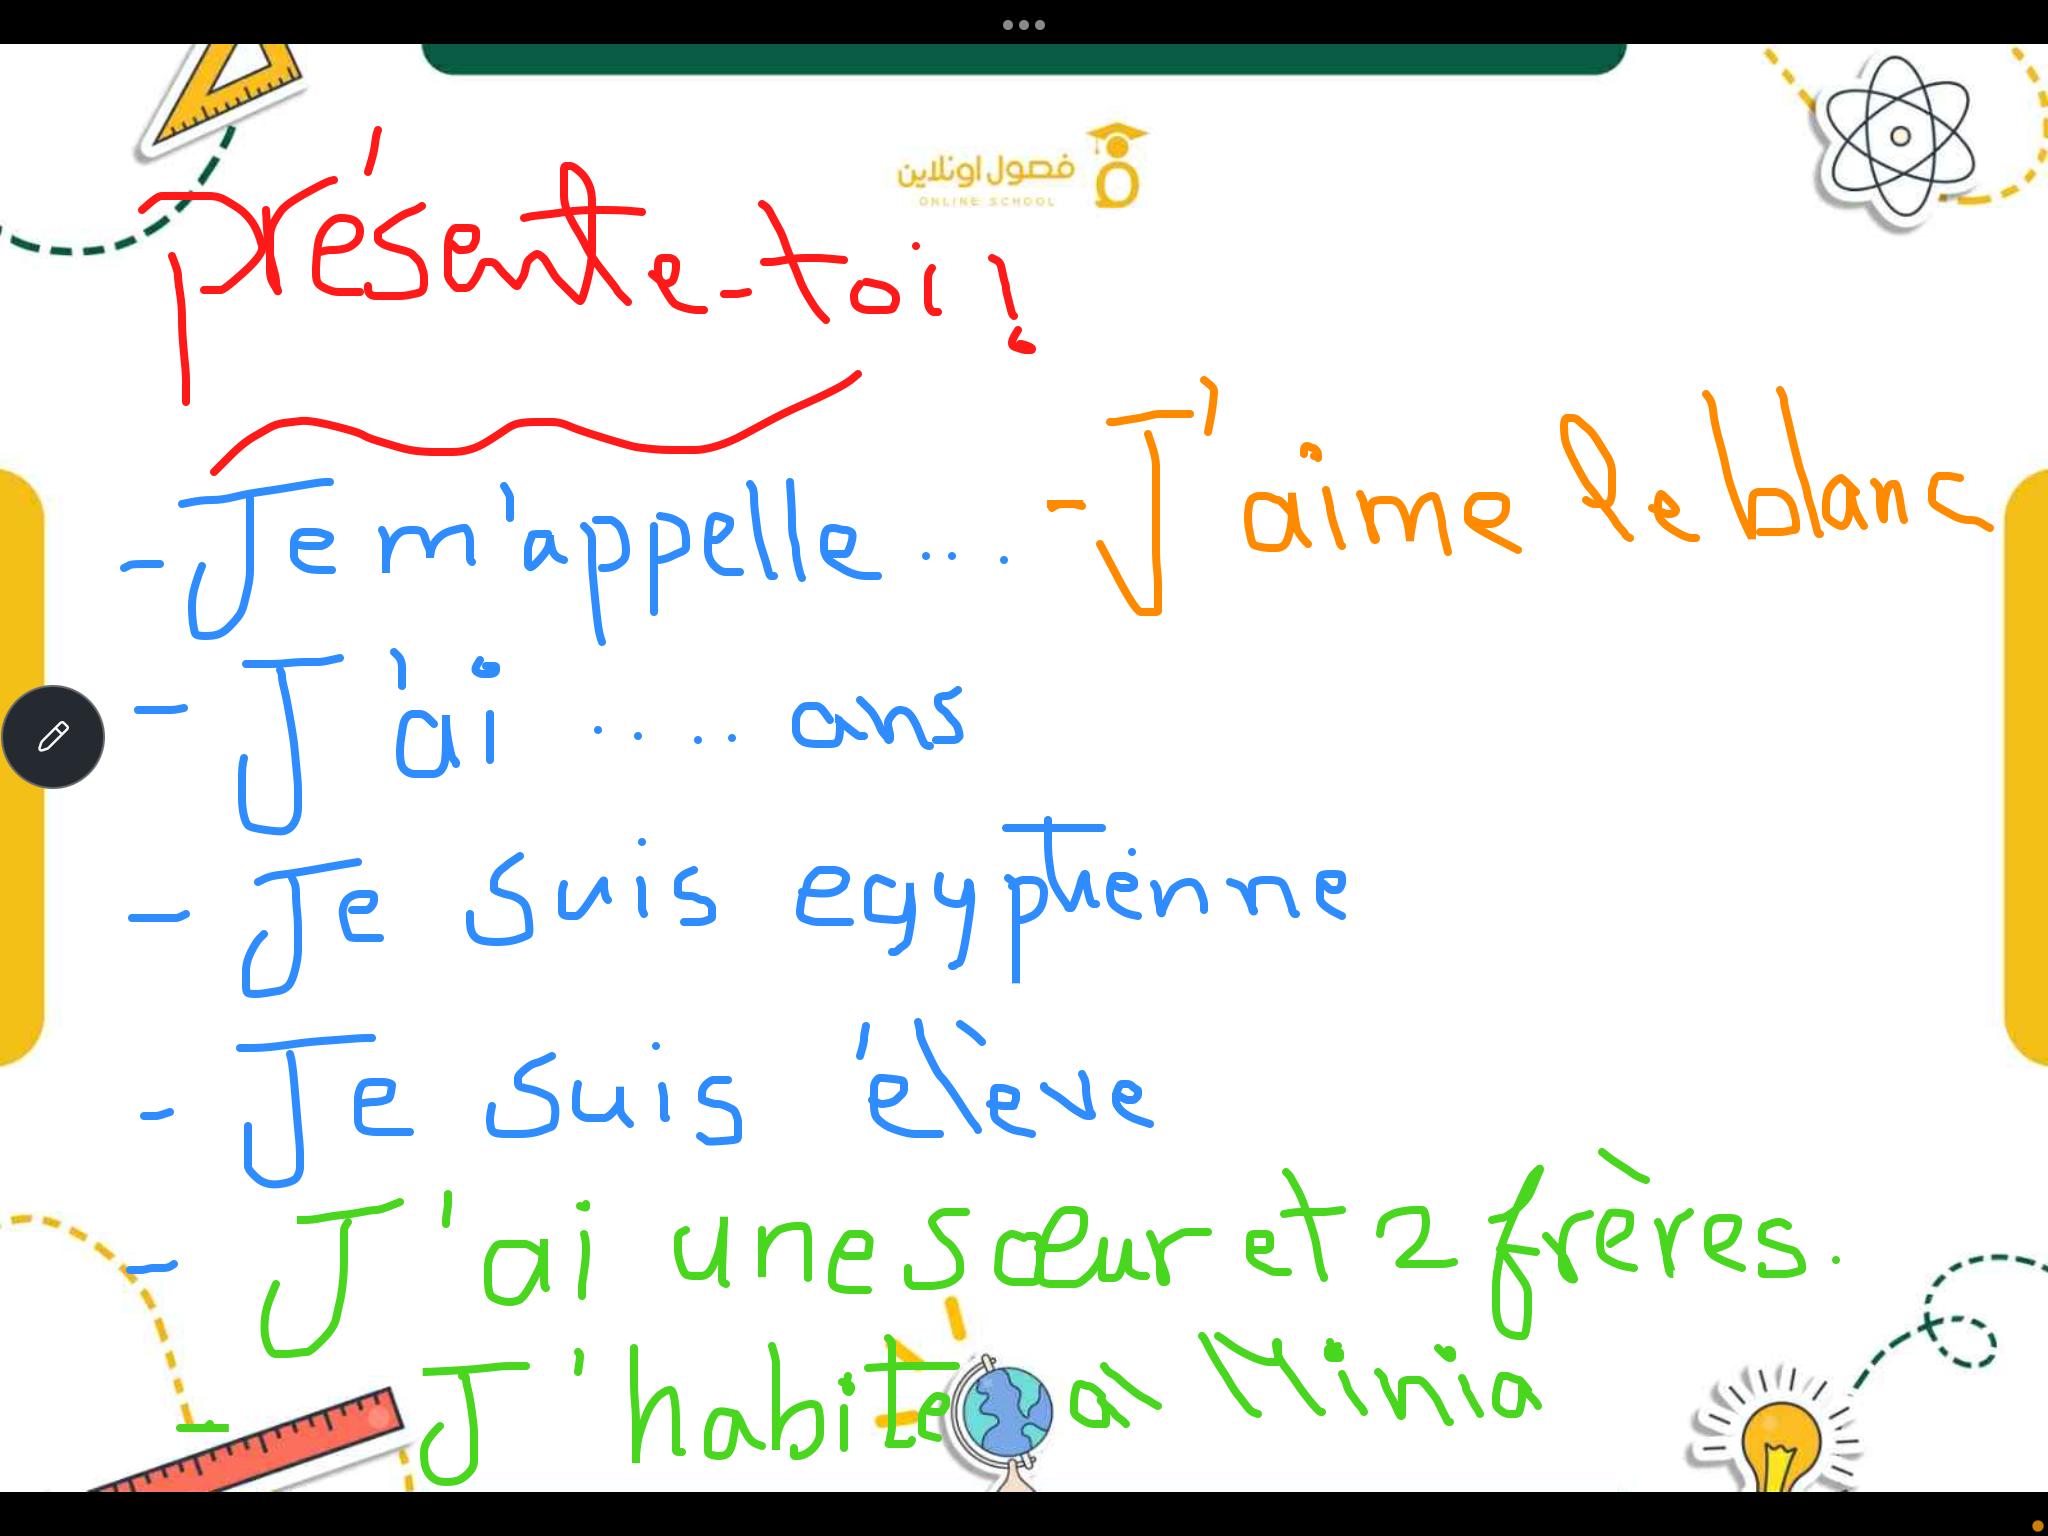 فصول اونلاين
ONLINE SCHOOL
présente-toi!
- Je m'appelle ...
- J'aime le blanc
- J'ai .... ans
- Je suis egyptienne
- Je suis élève
- J'ai une sœur et 2 frères.
- J'habite à Minia